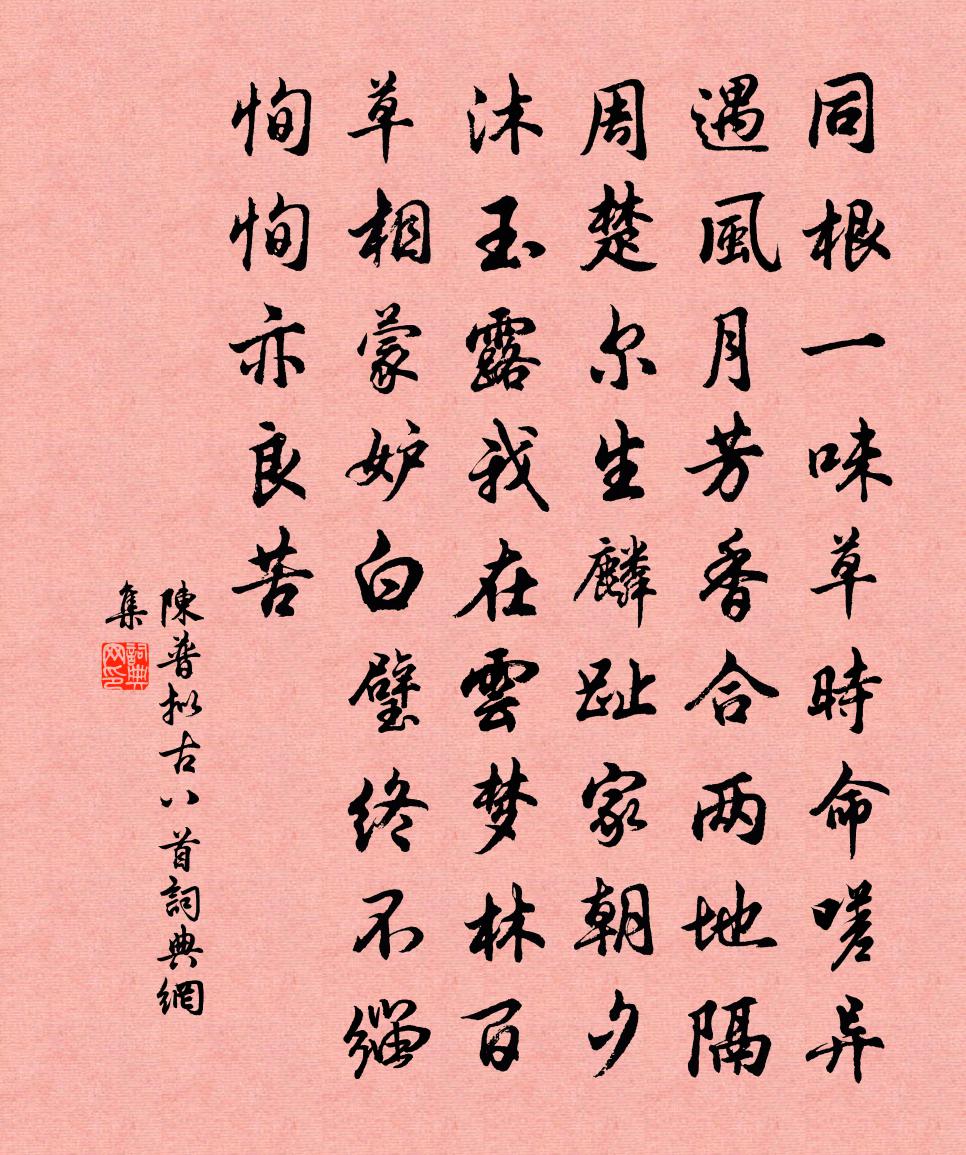 同根一味草時命嗟异
遇風月芳香合两地隔
周楚尔生麟趾家朝夕
沐玉露我在雲梦林百
草相蒙妒白璧終不緇
恂恂亦良苦
陳普拟古八首詞典網
集
詞典
网印